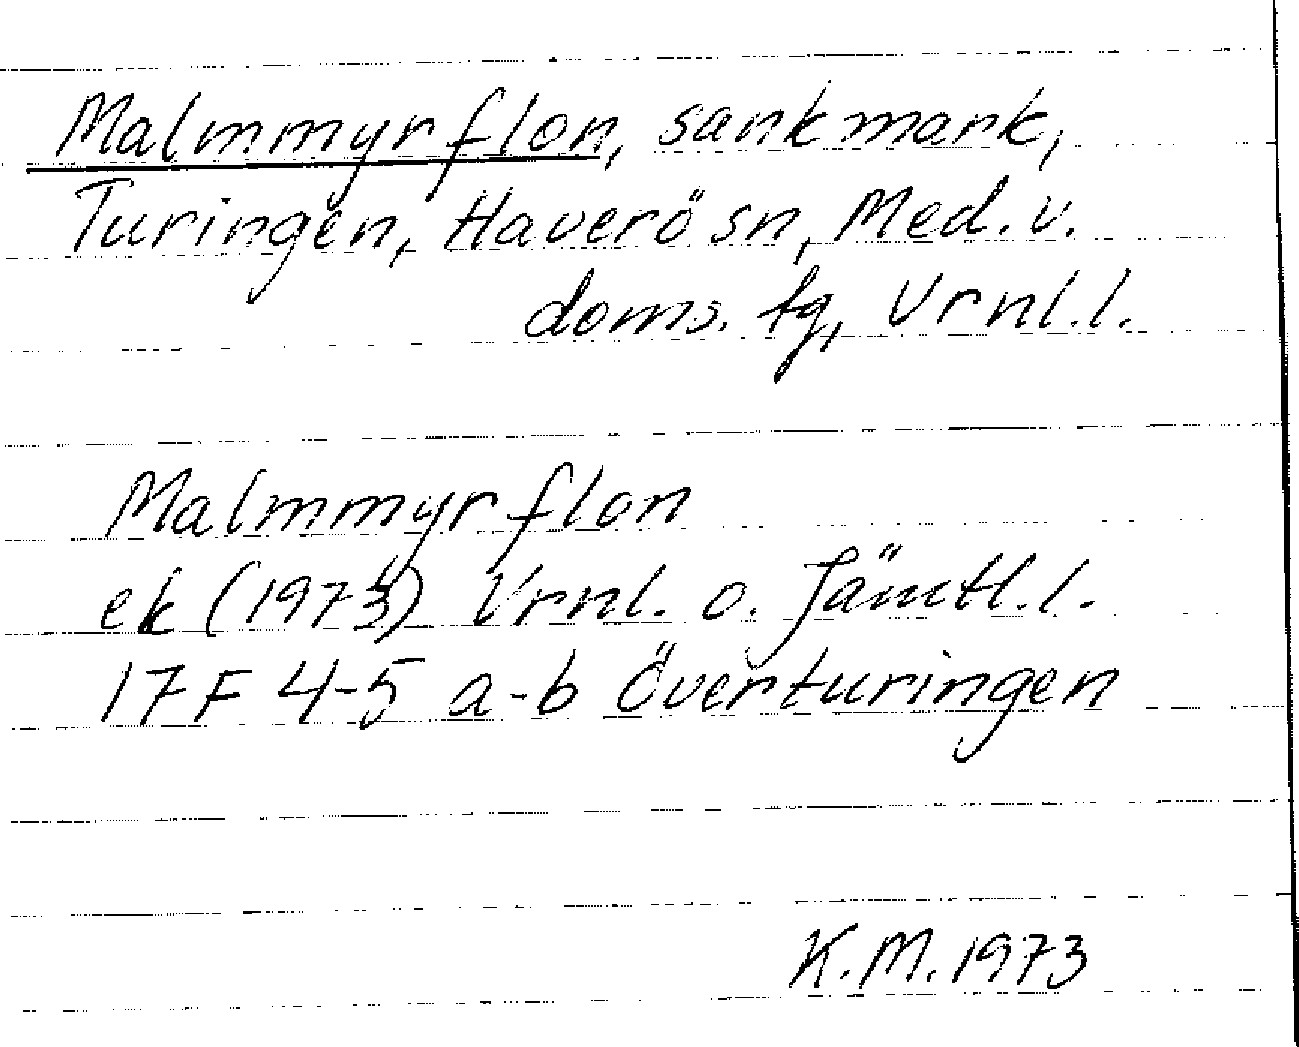 Malmmyrflon, sankmark,
Turingen, Haverö sn, Med. v.
doms. tg, Vrnl.l.
Malmmyrflon
ek (1973) Vrnl. o. Jämtl.l.
17F 4-5 a-b Överturingen
K.M. 1973